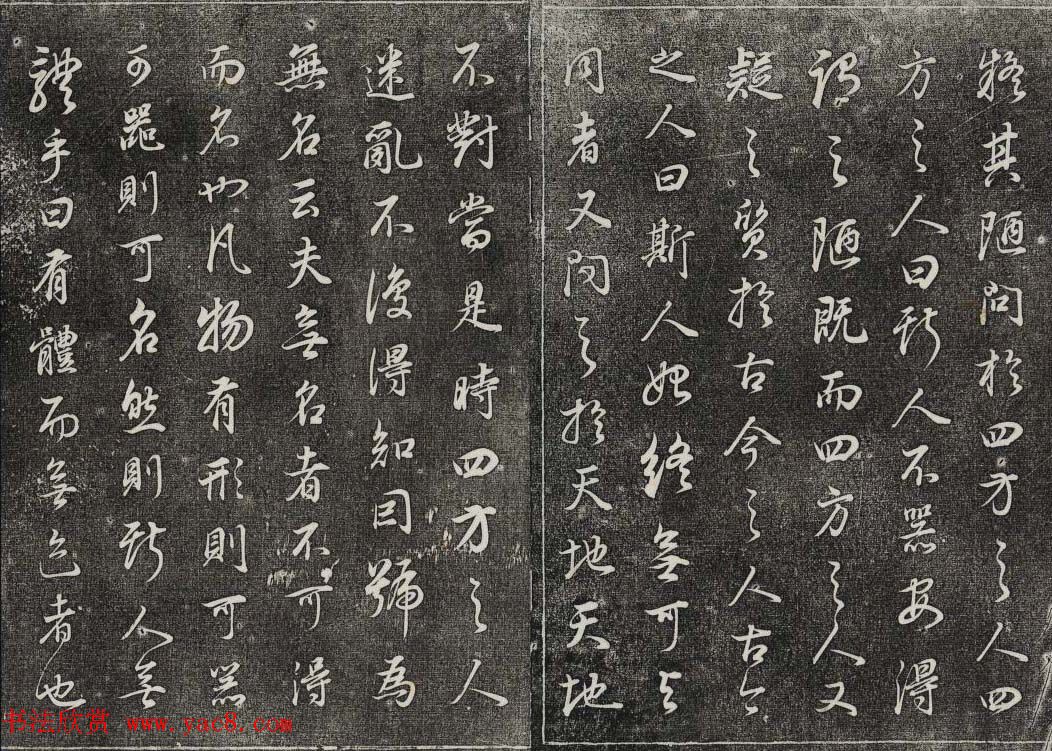 疑其陋問於四方之人四
方之人曰斯人不器安得
謂之陋既而四方之人又
疑之質於古今之人古今
之人曰斯人始終無可與
同者又問之於天地天地
不對當是時四方之人
迷亂不復得知因號為
無名云夫無名者不可得
而名也凡物有形則可器
可器則可名然則斯人無
體乎曰有體而無迹者也
书法欣赏 www.yac8.com